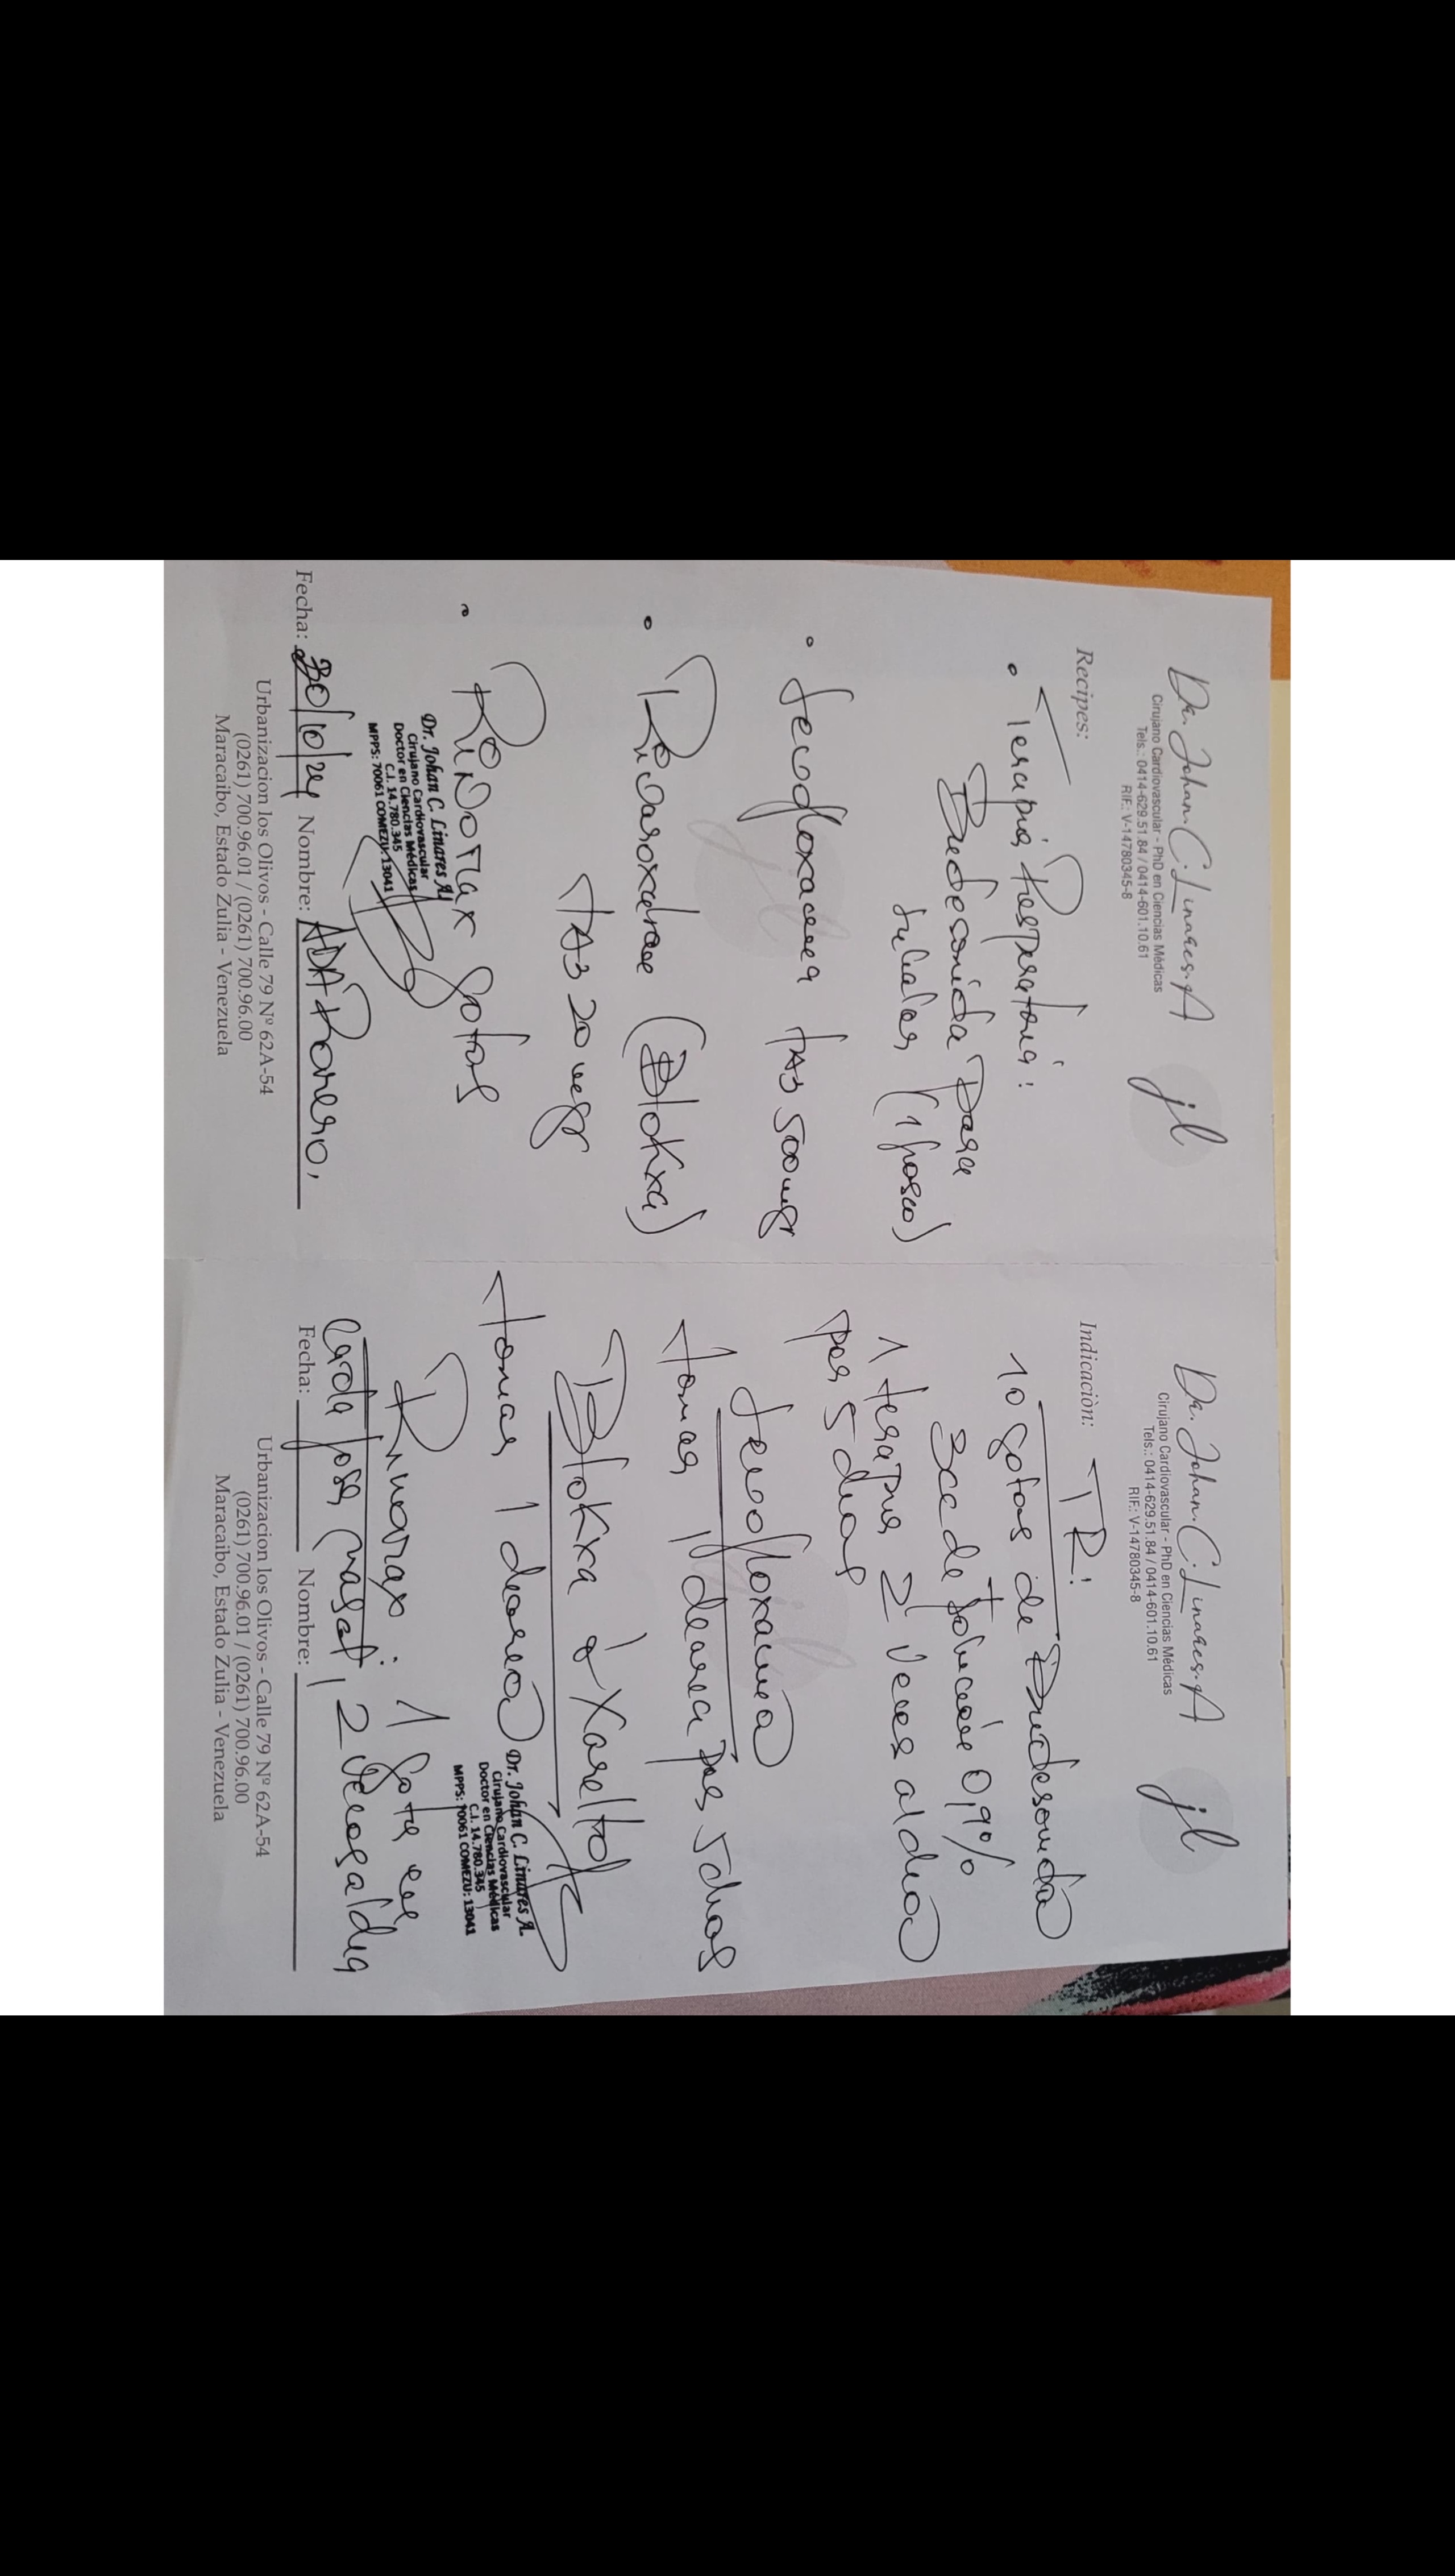 Dr. Johan C. Linares. A
jl
Cirujano Cardiovascular - PhD en Ciencias Médicas
Tels.: 0414-629.51.84 / 0414-601.10.61
RIF.: V-14780345-8
Recipes:
• Terapia Respiratoria:
Budesonida para
inhalar (1 frasco)
• Levofloxacina TAB 500mgr
• Rivaroxaban (Blokxa)
TAB 20 mgr
• Gotas
Dr. Johan C. Linares A.
Cirujano Cardiovascular
Doctor en Ciencias Médicas
C.I. 14.780.345
MPPS: 70061 COMEZU: 13041
Fecha: 30/10/24 Nombre: ADA Romero.
Urbanizacion los Olivos - Calle 79 Nº 62A-54
(0261) 700.96.01 / (0261) 700.96.00
Maracaibo, Estado Zulia - Venezuela
Dr. Johan C. Linares. A
jl
Cirujano Cardiovascular - PhD en Ciencias Médicas
Tels.: 0414-629.51.84 / 0414-601.10.61
RIF.: V-14780345-8
Indicaciòn: TR:
10 gotas de Budesonida
+
3cc de Solución 0,9%
1 terapia 2 veces al dia
por 5 dias
Levofloxacina
Tomar 1 diaria por 5 dias
Blokxa ò Xarelto
Tomar 1 diario
Dr. Johan C. Linares A.
Cirujano Cardiovascular
Doctor en Ciencias Médicas
C.I. 14.780.345
MPPS: 70061 COMEZU: 13041
: 1 gota en
cada fosa nasal, 2 veces al dia
Fecha: Nombre:
Urbanizacion los Olivos - Calle 79 Nº 62A-54
(0261) 700.96.01 / (0261) 700.96.00
Maracaibo, Estado Zulia - Venezuela